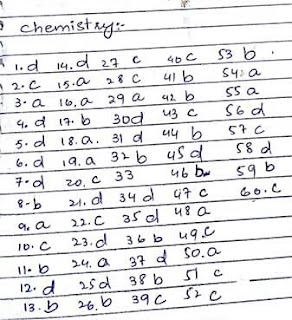 Chemistry:-
1. d 14. d 27 c 40 c 53 b.
2. c 15. a 28 c 41 b 54. a
3. a 16. a 29 a 42 b 55 a
4. d 17. b 30 d 43 c 56 d
5. d 18. a. 31 d 44 b 57 c
6. d 19. a 32 b 45 d 58 d
7. d 20. c 33 46 b 59 b
8. b 21. d 34 d 47 c 60. c
9. a 22. c 35 d 48 a
10. c 23. d 36 b 49. c
11. b 24. a 37 d 50. a
12. d 25 d 38 b 51 c
13. b 26. b 39 c 52 c